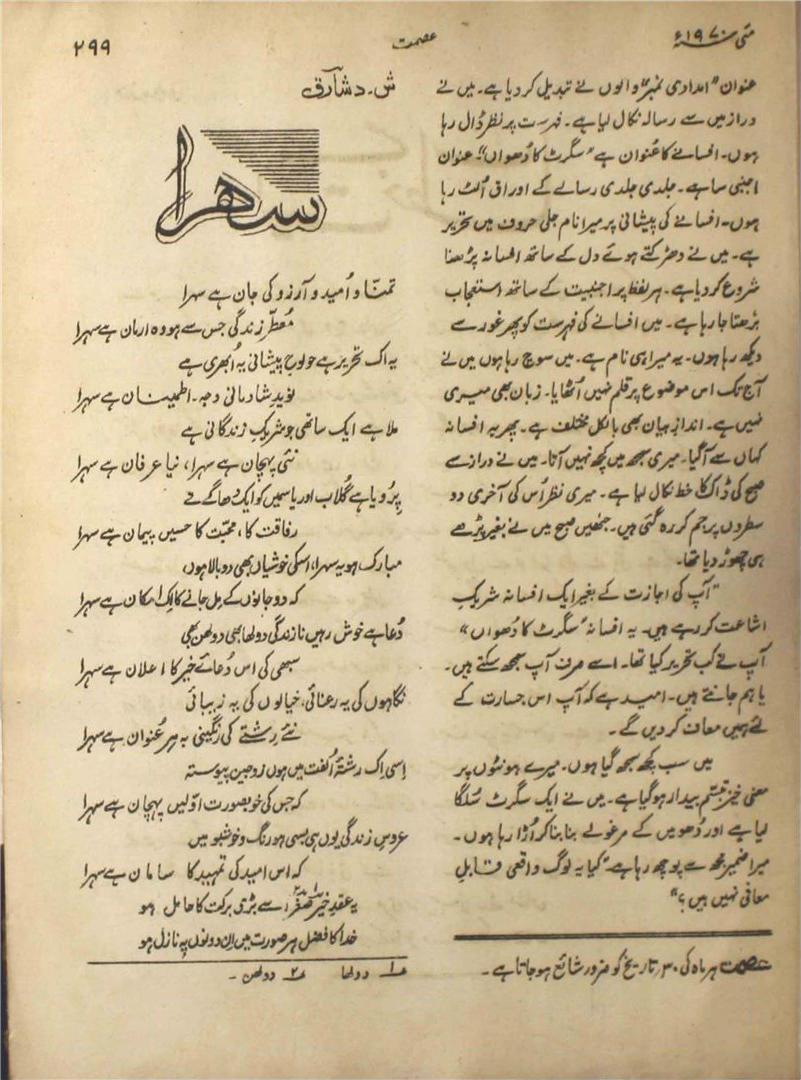 مئی سنہ ۱۹۷۰ء
عصمت
۲۹۹
عنوان "امدادی نمبر" والوں نے تبدیل کر دیا ہے۔ میں نے
دراز میں سے رسالہ نکال لیا ہے۔ فہرست پر نظر ڈال رہا
ہوں۔ افسانے کا عنوان ہے "سگرٹ کا دھواں"! عنوان
اجنبی سا ہے۔ جلدی جلدی رسالے کے اوراق اُلٹ رہا
ہوں۔ افسانے کی پیشانی پر میرا نام جلی حروف میں تحریر
ہے۔ میں نے دھڑکتے ہوئے دل کے ساتھ افسانہ پڑھنا
شروع کر دیا ہے۔ ہر لفظ پر اجنبیت کے ساتھ استعجاب
بڑھتا جا رہا ہے۔ میں افسانے کی فہرست کو پھر غور سے
دیکھ رہا ہوں۔ یہ میرا ہی نام ہے۔ میں سوچ رہا ہوں میں نے
آج تک اس موضوع پر قلم نہیں اُٹھایا۔ زبان بھی میری
نہیں ہے۔ اندازِ بیان بھی بالکل مختلف ہے۔ پھر یہ افسانہ
کہاں سے آ گیا۔ میری سمجھ میں کچھ نہیں آتا۔ میں نے دراز سے
صبح کی ڈاک کا خط نکال لیا ہے۔ میری نظر اُس کی آخری دو
سطروں پر جم کر رہ گئی ہیں۔ جنھیں صبح میں نے بغیر پڑھے
ہی چھوڑ دیا تھا۔
"آپ کی اجازت کے بغیر ایک افسانہ شریکِ
اشاعت کر رہے ہیں۔ یہ افسانہ "سگرٹ کا دھواں"
آپ نے کب تحریر کیا تھا۔ اسے صرف آپ سمجھ سکتے ہیں۔
یا ہم جانتے ہیں۔ امید ہے کہ آپ اس جسارت کے
لئے ہمیں معاف کر دیں گے۔
میں سب کچھ سمجھ گیا ہوں۔ میرے ہونٹوں پر
معنی خیز تبسّم بیدار ہو گیا ہے۔ میں نے ایک سگرٹ سُلگا
لیا ہے اور دُھویں کے مرغولے بنا بنا کر اُڑا رہا ہوں۔
میرا ضمیر مجھ سے پوچھ رہا ہے "کیا یہ لوگ واقعی قابلِ
معافی نہیں ہیں؟"
عصمت ہر ماہ کی ۳۰ تاریخ کو ضرور شائع ہو جاتا ہے۔
ش۔ د شارق
سہرا
تمنّا و اُمید و آرزو کی جان ہے سہرا
مُعطّر زندگی جس سے ہو وہ ارمان ہے سہرا
یہ اک تحریر ہے جو لوحِ پیشانی پہ اُبھری ہے
نویدِ شادمانی وجہِ اطمینان ہے سہرا
ملا ہے ایک ساتھی جو شریکِ زندگانی ہے
نئی پہچان ہے سہرا، نیا عرفان ہے سہرا
پرویا ہے گلاب اور یاسمیں کو ایک دھاگے نے
رفاقت کا، محبّت کا حسیں پیمان ہے سہرا
مبارک ہو یہ سہرا، اسکی خوشیاں بھی دوبالا ہوں
کہ دو جانوں کے مِل جانے کا اِک امکان ہے سہرا
دُعا ہے خوش رہیں تا زندگی دولھا بھی دولھن بھی
سبھی کی اس دُعائے خیر کا اعلان ہے سہرا
نگاہوں کی یہ رعنائی، خیالوں کی یہ زیبائی
نئے رِشتے کی رنگینی بہ ہر عُنوان ہے سہرا
اِسی اِک رشتۂ اُلفت میں ہوں زوجین پیوستہ
کہ جس کی خوبصورت اوّلیں پہچان ہے سہرا
عروسِ زندگی یوں ہی بسی ہو رنگ و خوشبو میں
کہ اس امید کی تمہید کا سامان ہے سہرا
یہ عقدِ خیر صغرا سے بڑی برکت کا حامل ہو
خدا کا فضل ہر صورت میں اِن دونوں پہ نازل ہو
۱؎ دولھا ۲؎ دولھن۔